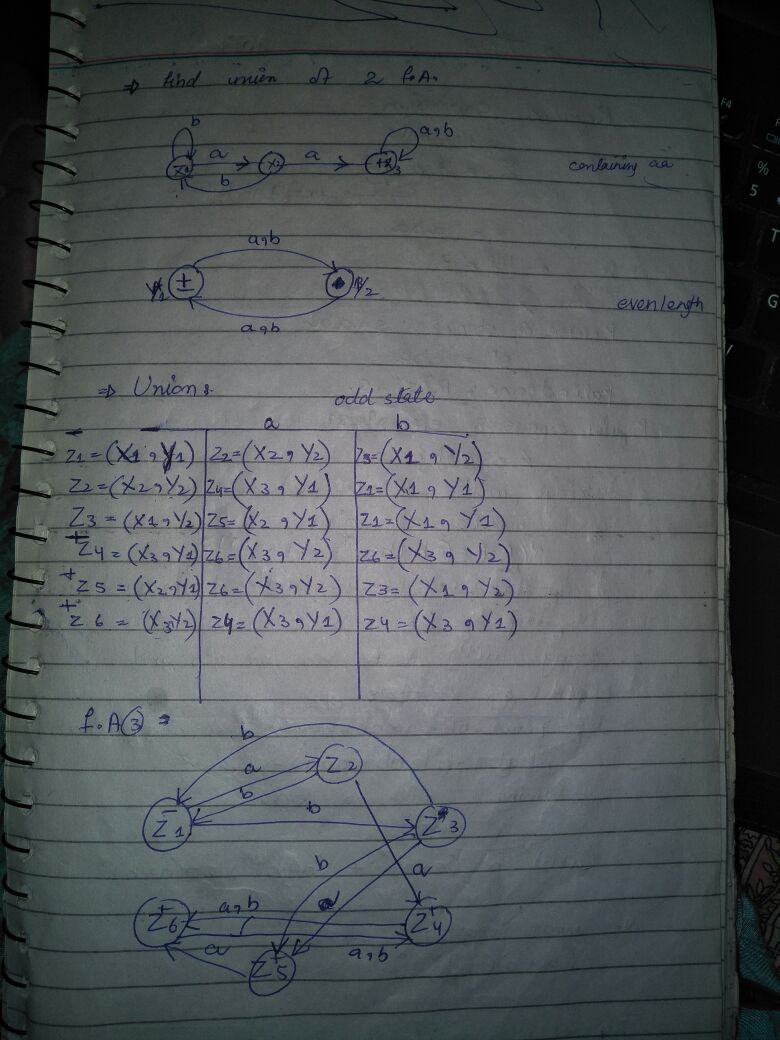 ⇒ find union of 2 f.A.
b
a a a,b
x2 +x3 containing aa
b
a,b
y1 ± y2
even length
a,b
⇒ Union:
odd state
a b
- z1 = (X1, Y1) Z2 = (X2, Y2) Z3 = (X1, Y2)
Z2 = (X2, Y2) Z4 = (X3, Y1) Z1 = (X1, Y1)
Z3 = (X1, Y2) Z5 = (X2, Y1) Z1 = (X1, Y1)
+ Z4 = (X3, Y1) Z6 = (X3, Y2) Z6 = (X3, Y2)
+ Z5 = (X2, Y1) Z6 = (X3, Y2) Z3 = (X1, Y2)
+ Z6 = (X3Y2) Z4 = (X3, Y1) Z4 = (X3, Y1)
f.A(3) =
b
a Z2
b
Z1- b Z3
b a
a,b
Z6+ Z4+
a a,b
Z5+